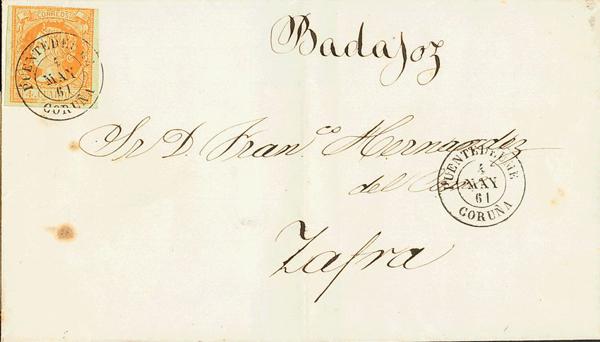 CORREOS
PUENTEDEUME
4
MAY
61
CORUÑA
Badajoz
Sr. D. Franco. Hernandez
del
PUENTEDEUME
4
MAY
61
CORUÑA
Zafra